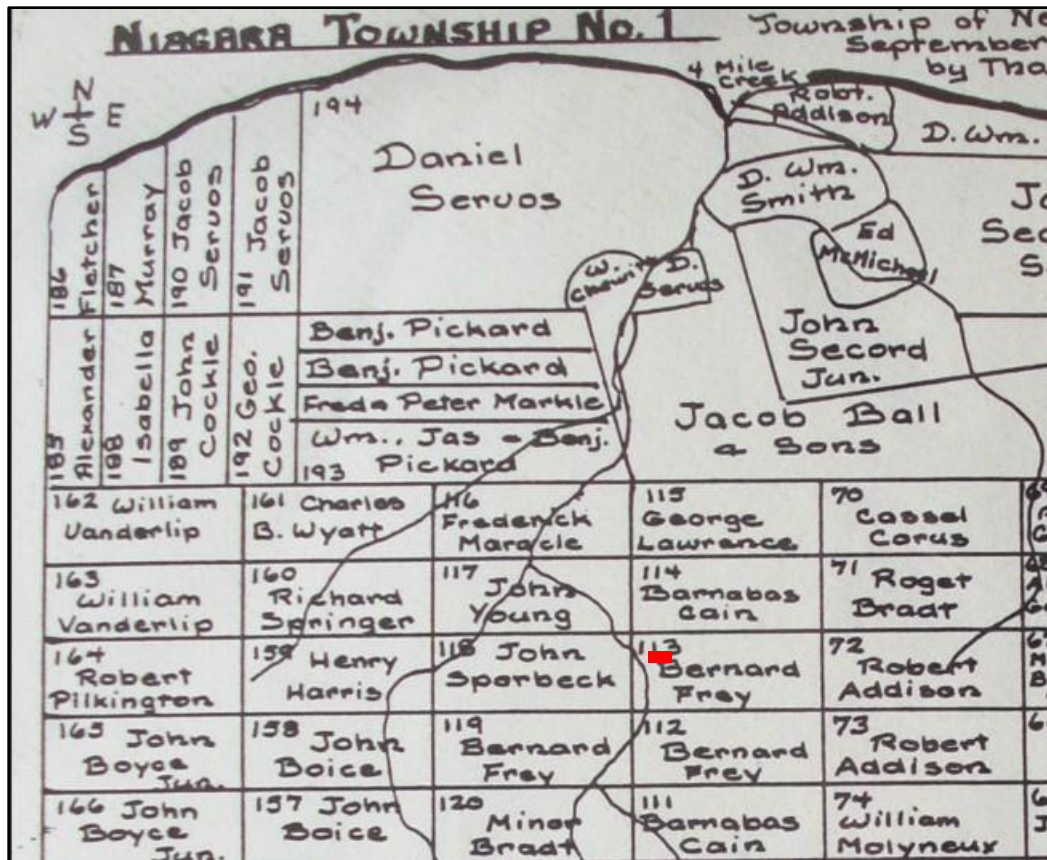 NIAGARA TOWNSHIP No. 1
Township of Ne
September
by Tha
N
W E
S
4 Mile
Creek
Robt.
Addison
D. Wm.
194
Daniel
Servos
D. Wm.
Smith
Ed
McMichael
Ja
Sec
S
186
Fletcher
187
Murray
190 Jacob
Servos
191 Jacob
Servos
W.
D.
Servos
John
Secord
Jun.
185
Alexander
188
Isabella
189 John
Cockle
192 Geo.
Cockle
Benj. Pickard
Benj. Pickard
Fred & Peter Markle
Wm., Jas & Benj.
193 Pickard
Jacob Ball
& Sons
162 William
Vanderlip
161 Charles
B. Wyatt
116
Frederick
Maracle
115
George
Lawrance
70
Cassel
Corus
163
William
Vanderlip
160
Richard
Springer
117
John
Young
114
Barnabas
Cain
71
Roger
Bradt
164
Robert
Pilkington
159 Henry
Harris
118 John
Sporbeck
113
Bernard
Frey
72
Robert
Addison
165 John
Boyce
Jun.
158
John
Boice
119
Bernard
Frey
112
Bernard
Frey
73
Robert
Addison
166 John
Boyce
Jun.
157 John
Boice
120
Minor
Bradt
111
Barnabas
Cain
74
William
Molyneux